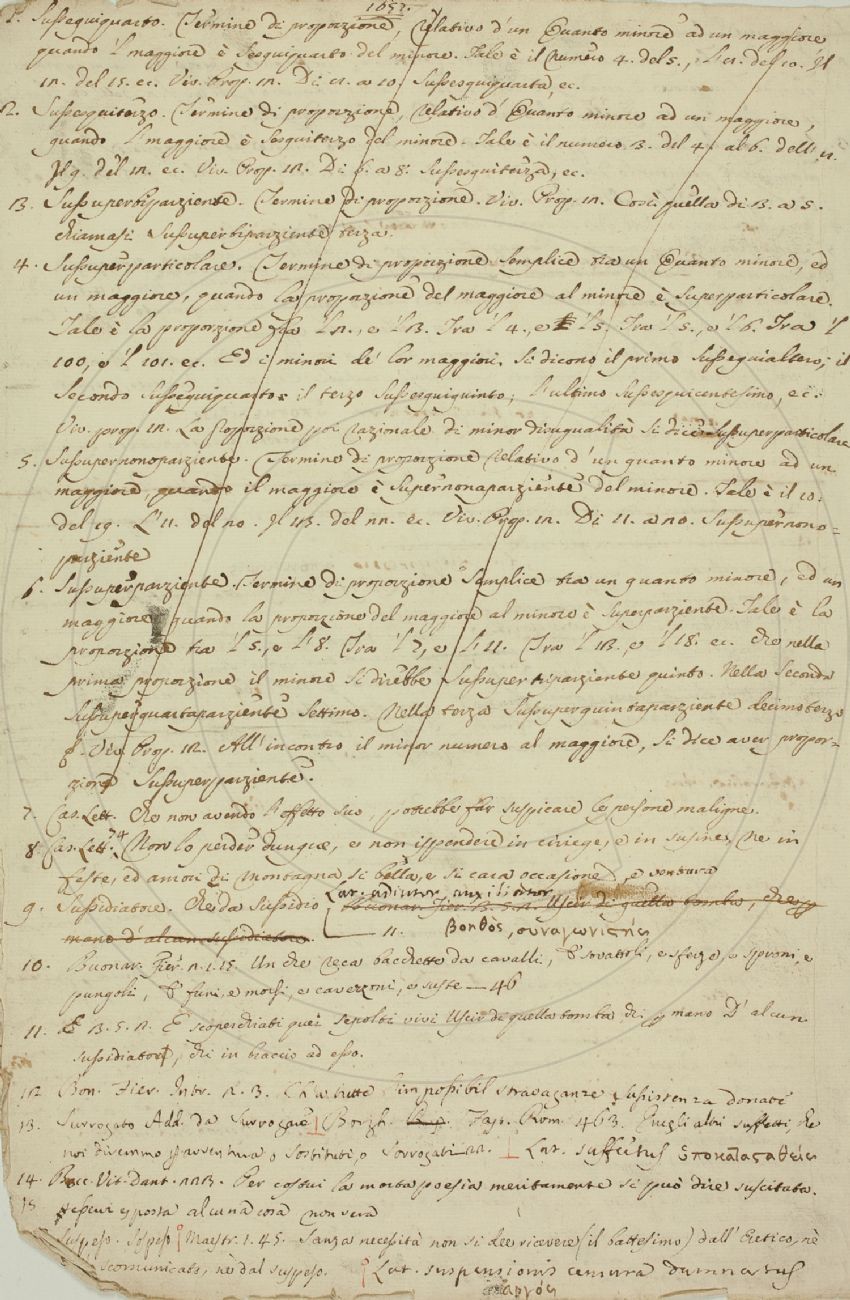 1652.
1. Sussequiquarto. Termine di proporzione, relativo d'un Quanto minore ad un maggiore
quando 'l maggiore è Sesquiquarto del minore. Tale è il numero 4. del 5., l'8. del 10. Il
12. del 15. ec. Viv. Prop. 12. Di 8. a 10. Sussesquiquarta, ec.
2. Sussesquiterzo. Termine di proporzione, relativo d'Quanto minore ad un maggiore,
quando 'l maggiore è Sesquiterzo del minore. Tale è il numero 3. del 4. al 6. dell'
Il 9. del 12. ec. Viv. Prop. 12. Di 6. a 8. Sussesquiterza, ec.
3. Sussuperbiparziente. Termine di proporzione. Viv. Prop. 12. Così quella di 3. a 5.
chiamasi Sussuperbiparziente terza.
4. Sussuperparticolare. Termine di proporzione semplice tra un Quanto minore, ed
un maggiore, quando la proporzione del maggiore al minore è Superparticolare.
Tale è la proporzione fra 'l 2., e 'l 3. Tra 'l 4., e 'l 5. Tra 'l 5., e 'l 6. Tra 'l
100, e 'l 101. ec. Ed i minori de' lor maggiori, si dicono il primo Sussequialtero; il
secondo Sussequiquarto; il terzo Sussesquiquinto; l'ultimo Sussesquicentesimo, ec.
Viv. prop. 12. La proporzione poi razionale di minor disugualità si dice Sussuperparticolare
5. Sussupernonoparziente. Termine di proporzione relativo d'un quanto minore ad un
maggiore, quando il maggiore è Supernonaparziente del minore. Tale è il 10.
del 19. L'11. del 20. Il 13. del 22. ec. Viv. Prop. 12. Di 11. a 20. Sussupernono=
parziente
6. Sussuperparziente. Termine di proporzione semplice tra un quanto minore, ed un
maggiore quando la proporzione del maggiore al minore è Superparziente. Tale è la
proporzione tra 'l 5., e l'8. Tra 'l 7., e l'11. Tra 'l 13., e 'l 18. ec. che nella
prima proporzione il minore si direbbe Sussupertriparziente quinto. Nella seconda
Sussuperquartaparziente settimo. Nella terza Sussuperquintaparziente decimoterzo
Viv. Prop. 12. All'incontro il minor numero al maggiore, si dice aver propor-
zione Sussuperparziente.
7. Cas. Lett. Che non avendo l'effetto suo, potrebbe far suspicare le persone maligne.
8. Cas. Lett. 74 Non lo perder dunque, e non ispendere in ciriege, e in susine, ne in
feste, ed amori di montagna si bella, e si cara occasione, e ventura
9. Sussidiatore. Che da Sussidio Lat. adiutor, auxiliator Buonar. Fier. 3. 5. 2. Uscir di quella tomba, che
mano d'alcun sussidiatore. 11. βοηθὸς, συναγωνιστής
10. Buonar. Fier. 2. 1. 15. Un che reca bacchette da cavalli, e sovattoli, e sferze, e sproni, e
pungoli, e funi, e morsi, e cavezzoni, e suste — 46
11. E 3. 5. 2. E scoperchiati quei sepolti vivi Uscir di quella tomba, chi mano D'alcun
sussidiator, chi in braccio ad esso.
12. Bon. Fier. Intr. 2. 3. Ch'a tutte l'impossibil stravaganze sussistenza donate
13. Surrogato Add. da Surrogare Borgh. Fap. Rom. 463. Quegli altri suffetti, che
noi diremmo per avventura, o sostituti, o sorrogati 22. Lat. suffectus ὑποκατασταθείς
14. Bocc. Vit. Dant. 223. Per costui la morta poesia meritamente si può dire suscitata.
15. esposta alcuna cosa non sera
Suspeso. Sospeso Maestr. 1. 45. Sanza necessità non si dee ricevere (il battesimo) dall'Eretico, nè
scomunicato, nè dal suspeso. Lat. suspensionis censura damnatus
ἀργός